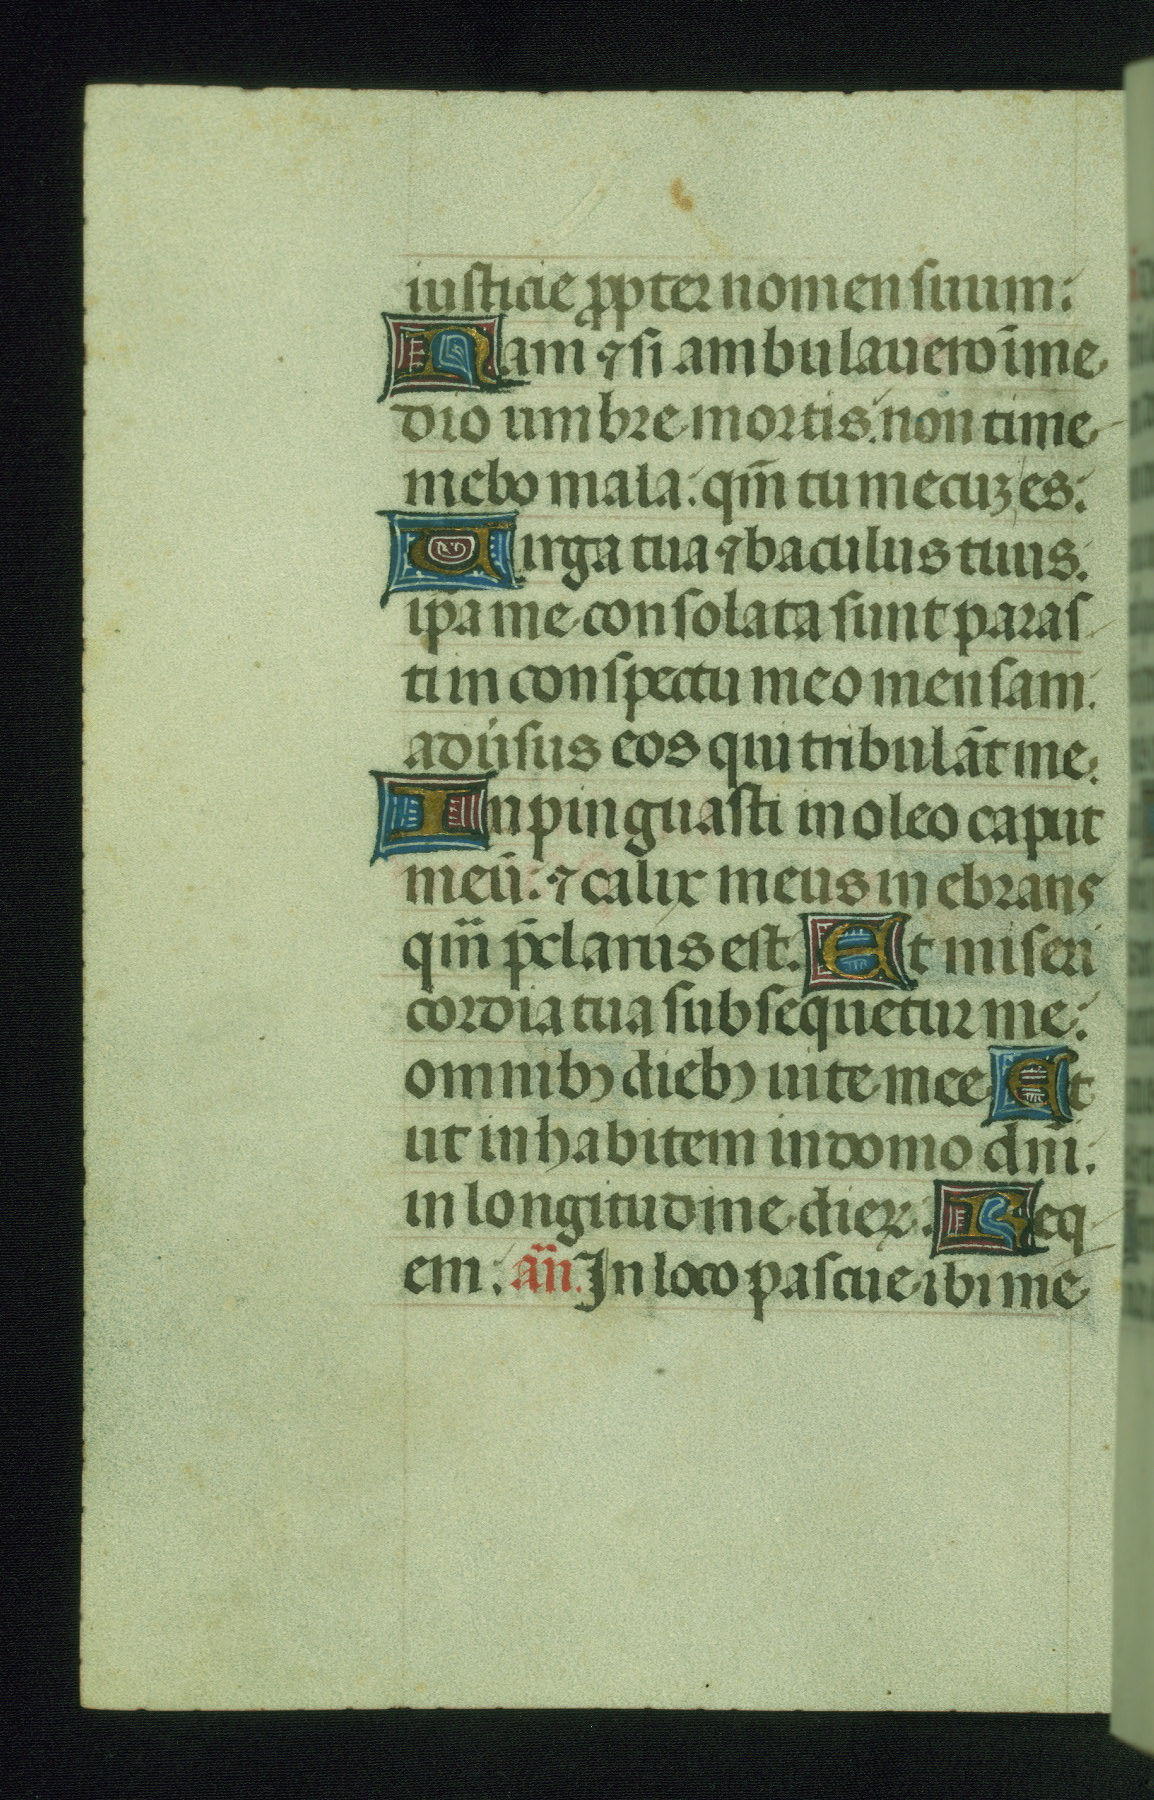 iusticie propter nomen suum:
Nam ⁊ si ambulauero ī me
dio umbre mortis. non time
mebo mala: qm̄ tu mecuꝫ es:
Uirga tua ⁊ baculus tuus.
ip̄a me consolata sunt paras
ti in conspectu meo mensam.
adu̓sus eos qui tribulāt me.
Inpinguasti in oleo caput
meū: ⁊ calix meus inebrans
qm̄ p̄clarus est. Et miseri
cordia tua subsequetur me:
omnibꝰ diebꝰ uite mee Et
ut inhabitem in domo dn̄i.
in longitudine dieꝝ. Req
em: an̄. In loco pascue ibi me